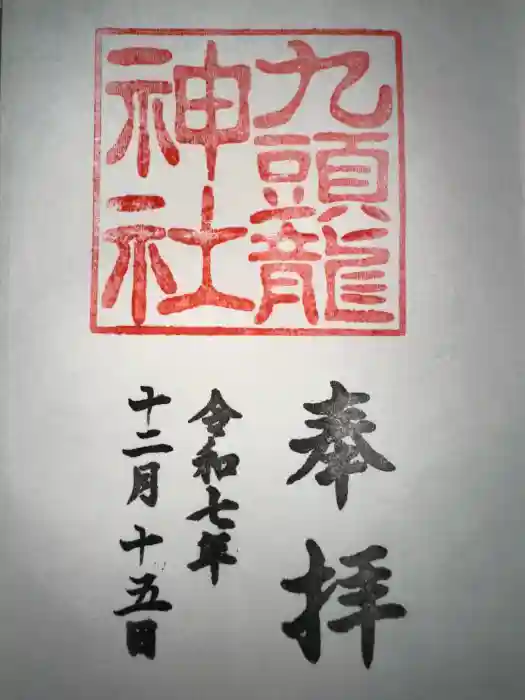 九頭龍
神社
奉拝
令和七年
十二月十五日